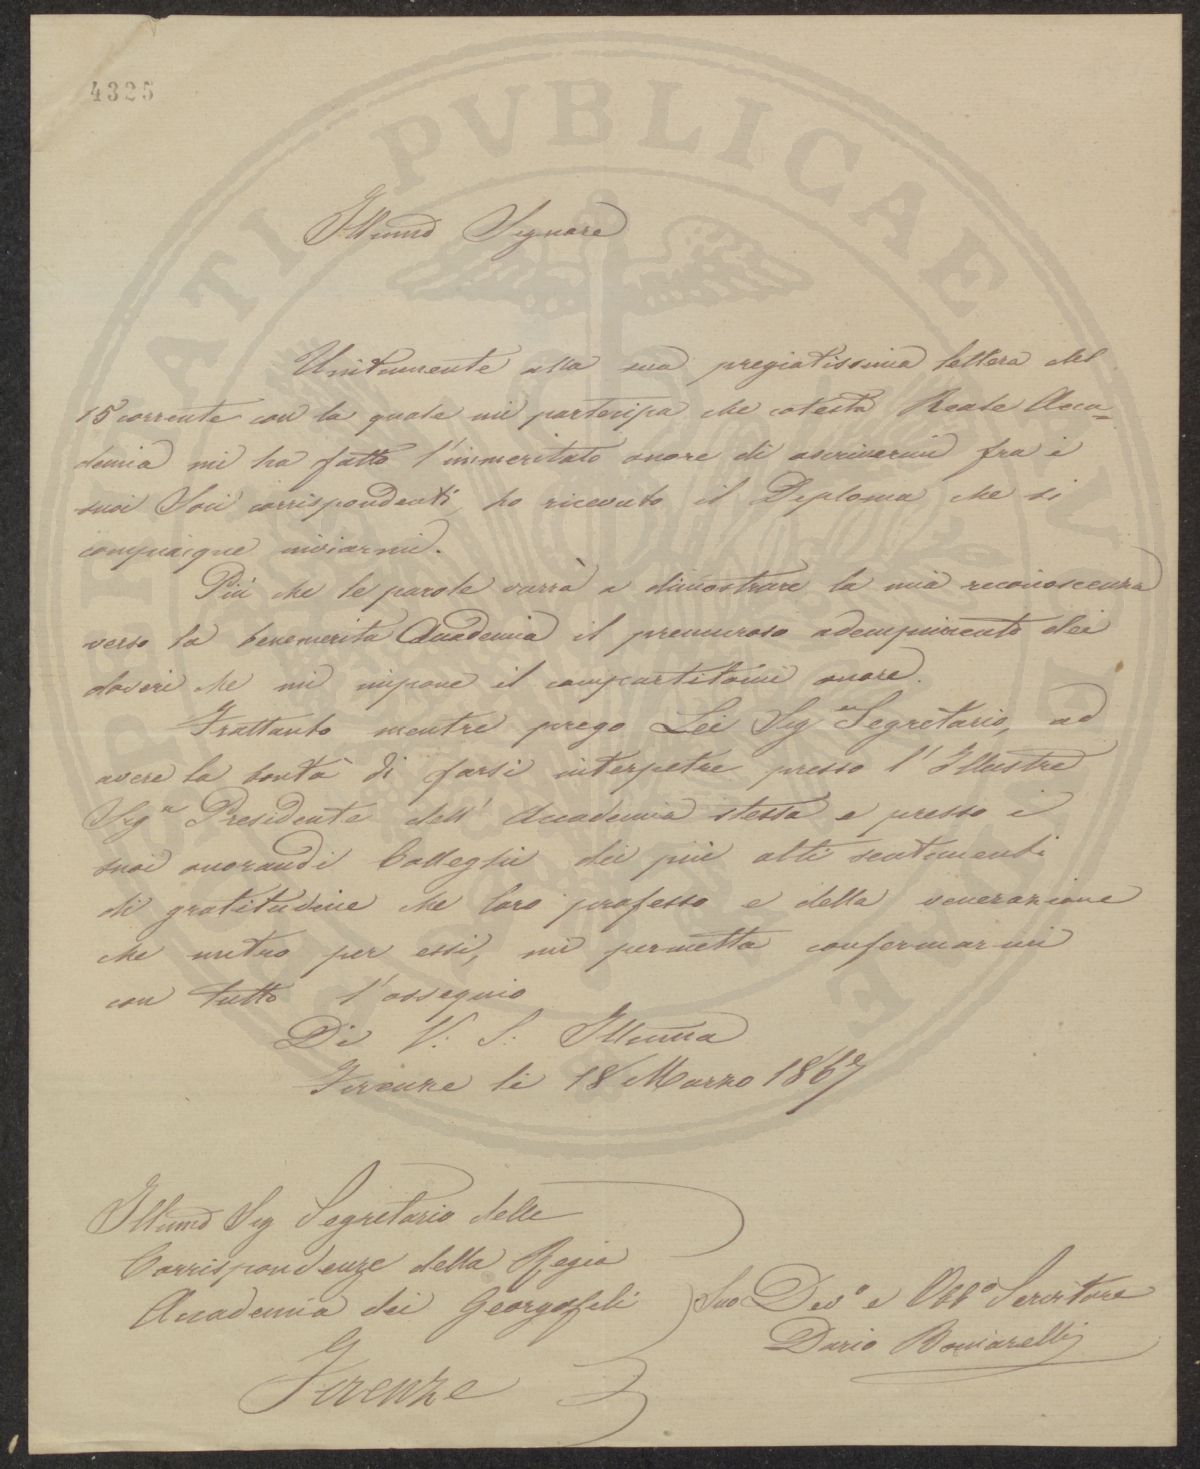 4325
PROSPERITATI PVBLICAE AVGENDAE
Illumo Signore
Unitamente alla sua pregiatissima lettera del
15 corrente con la quale mi partecipa che cotesta Reale Acca=
demia mi ha fatto l'immeritato onore di ascrivermi fra i
suoi Soci corrispondenti, ho ricevuto il Diploma che si
compiacque inviarmi.
Più che le parole varrà a dimostrare la mia reconoscenza
verso la benemerita Accademia il premuroso adempimento dei
doveri che mi impone il compartitomi onore.
Frattanto mentre prego Lei Sigre Segretario, ad
avere la bontà di farsi interpetre presso l'Illustre
Sigre Presidente dell'Accademia stessa e presso i
suoi onorandi Colleghi dei più alti sentimenti
di gratitudine che loro professo e della venerazione
che nutro per essi, mi permetta confermarmi
con tutto l'ossequio
Di V. S. Illuma
Firenze li 18 Marzo 1867
Illumo Sig Segretario delle
Corrispondenze della Regia
Accademia dei Georgofili
Firenze
Suo Devo e Obbo Servitore
Dario